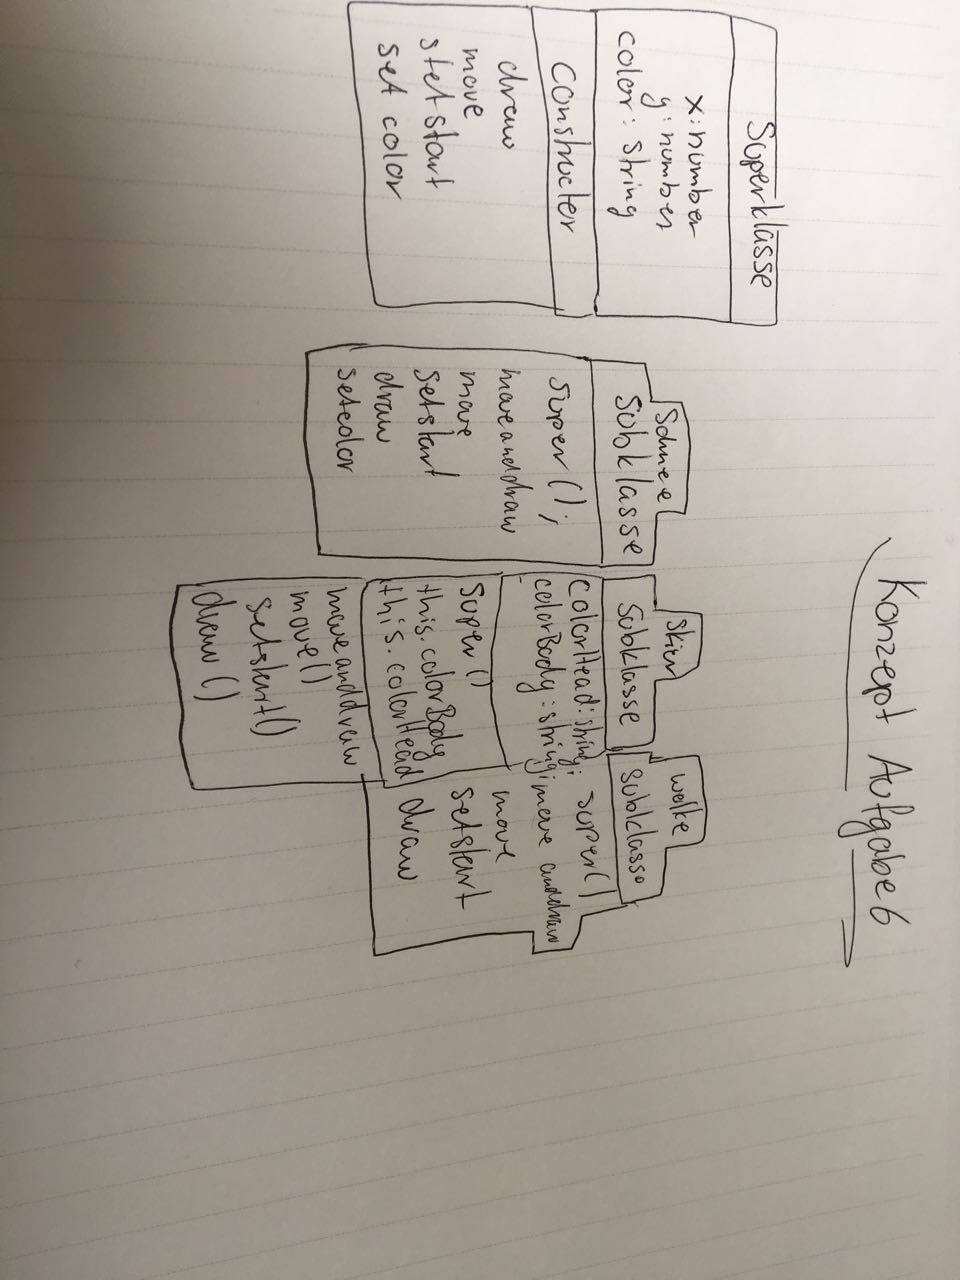 Konzept Aufgabe 6
Superklasse
x: number
y: number
color: string
Constructer
draw
move
stetstart
set color
Schnee
Subklasse
super();
moveanddraw
move
setstart
draw
setcolor
Skier
Subklasse
colorHead: string;
colorBody: string;
super()
this.colorBody
this.colorHead
moveanddraw
move()
setstart()
draw()
wolke
Subklasse
super()
move anddraw
move
setstart
draw